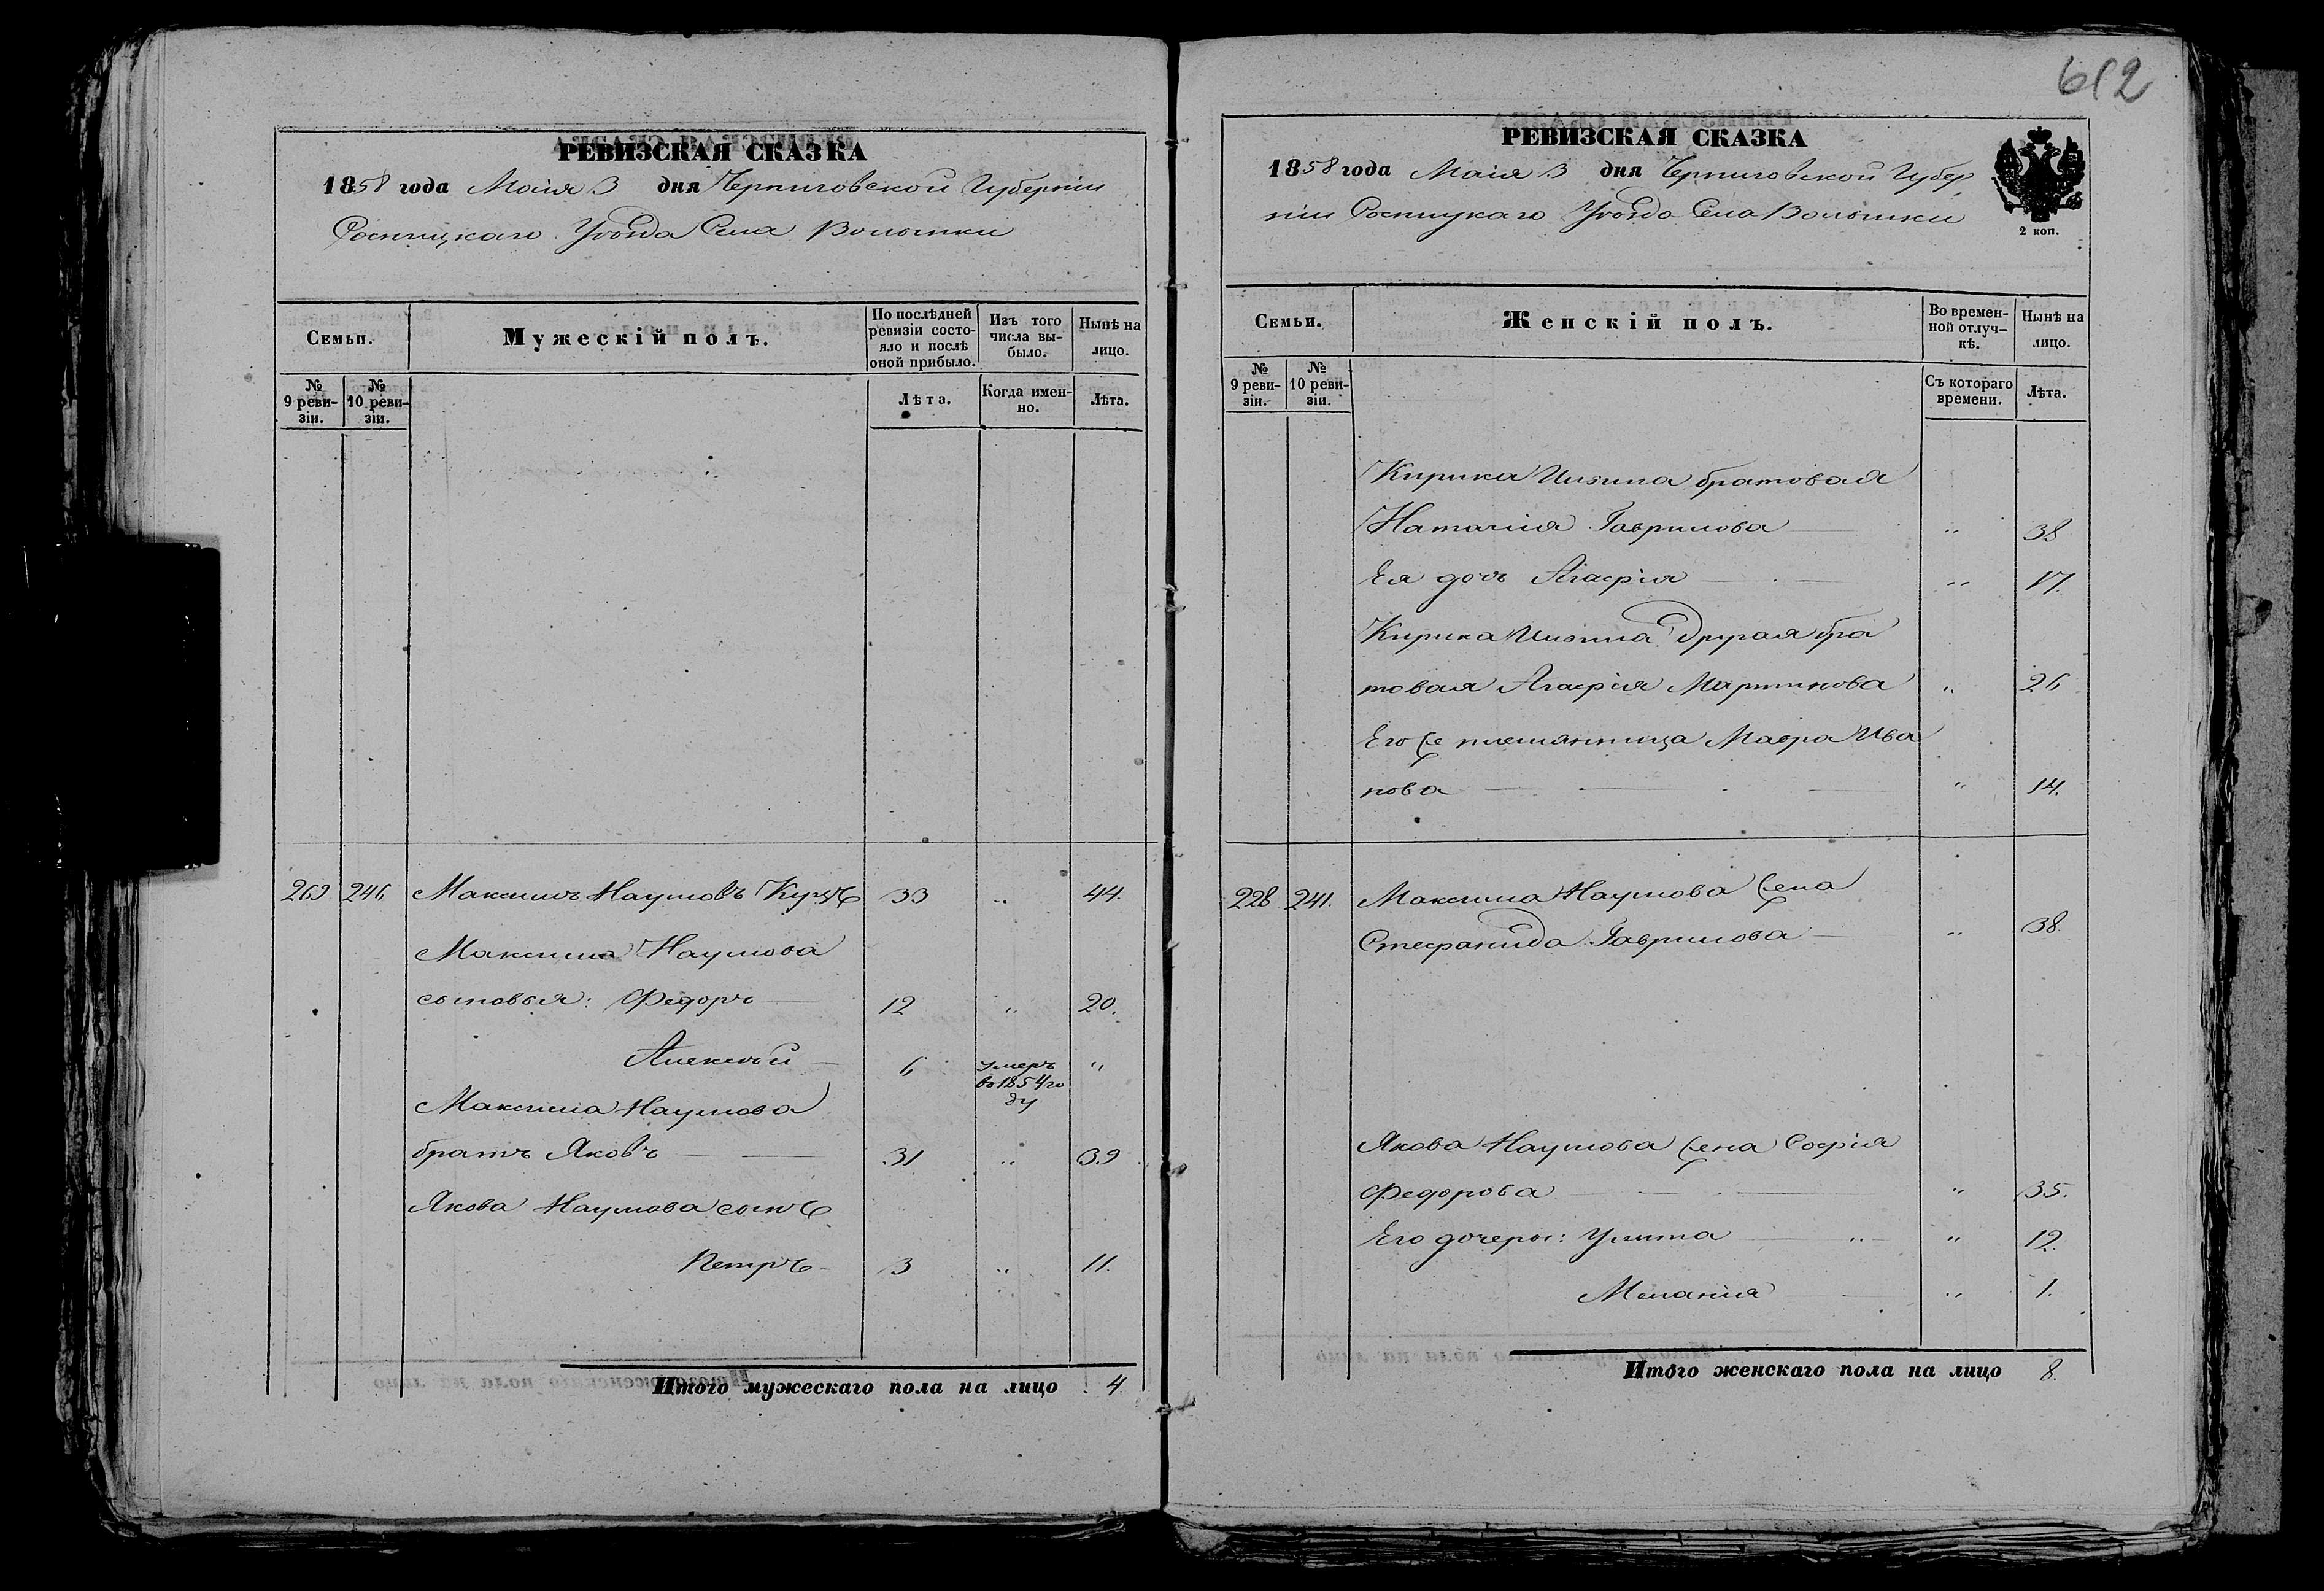 612
РЕВИЗСКАЯ СКАЗКА
1858 года Маія 3 дня Черниговской Губерніи
Сосницкаго Уѣзда Села Волынки
Семьи.
Мужескій полъ.
По послѣдней ревизіи состояло и послѣ оной прибыло.
Изъ того числа выбыло.
Нынѣ на лицо.
№ 9 ревизіи.
№ 10 ревизіи.
Лѣта.
Когда именно.
Лѣта.
263 246 Максимъ Наумовъ 33 " 44.
Максима Наумова
сыновья: Федоръ 12 " 20.
Алексѣй 6 умеръ "
въ 1854 го
ду
Максима Наумова
братъ Яковъ 31 " 39
Якова Наумова сынъ
Петръ 3 " 11.
Итого мужескаго пола на лицо 4.
РЕВИЗСКАЯ СКАЗКА
1858 года Маія 3 дня Черниговской Губер
ніи Сосницкаго Уѣзда Села Волынки
2 коп.
Семьи.
Женскій полъ.
Во временной отлучкѣ.
Нынѣ на лицо.
№ 9 ревизіи.
№ 10 ревизіи.
Съ котораго времени.
Лѣта.
Кирика братовая
Наталія Гаврилова " 38
Ея дочь Агафія " 17.
Кирика другая бра
товая Агафія Мартинова " 26
Его же племянница Мавра Ива
нова " 14.
228 241. Максима Наумова жена
Стефанида Гаврилова " 38.
Якова Наумова жена Софія
Федорова " 35.
Его дочеры: Улита " 12.
Меланія " 1.
Итого женскаго пола на лицо 8.